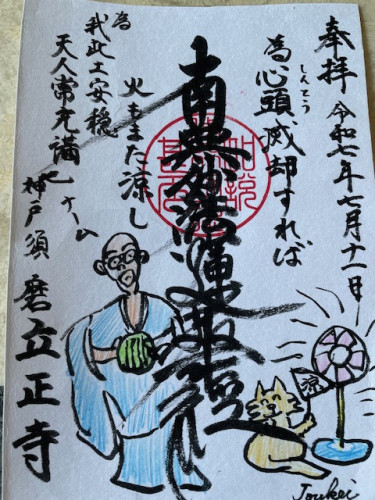 奉拝 令和七年七月十一日
しんとう
為心頭滅却すれば
火もまた涼し
南無妙法蓮華経
為
我此土安穏
天人常充満
神戸須磨立正寺
涼
Joukei